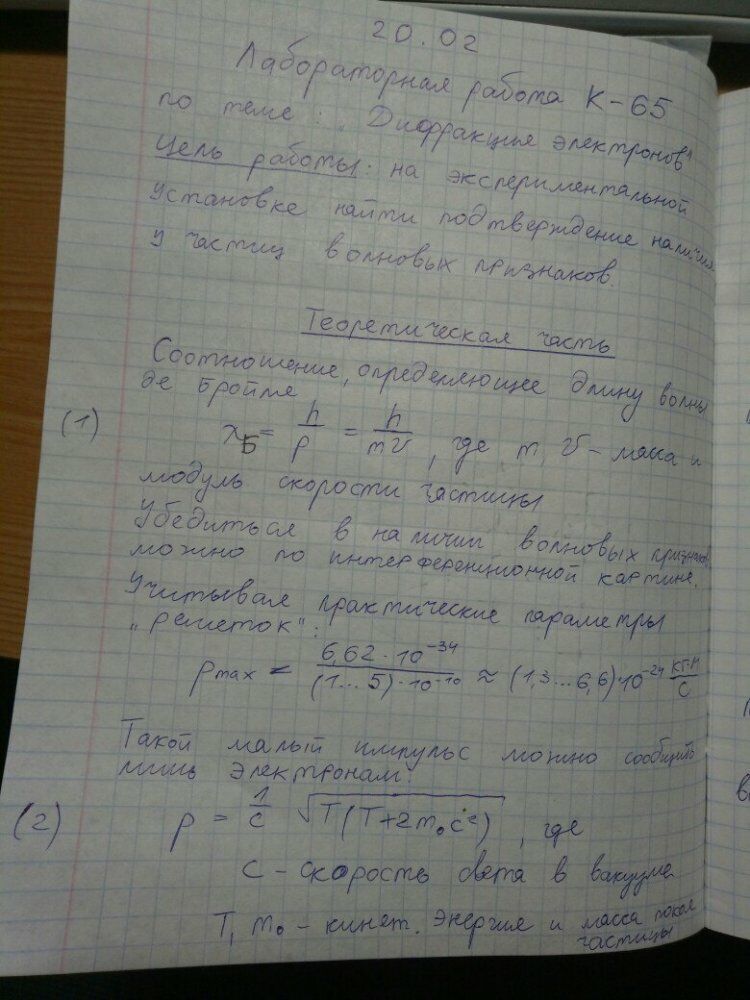 20.02
Лабораторная работа К-65
по теме: „Дифракция электронов"
Цель работы: на экспериментальной
установке найти подтверждение наличия
у частиц волновых признаков.
Теоретическая часть
Соотношение, определяющее длину волны
де Бройля
(1) λ_Б = h/p = h/mv, где m, v – масса и
модуль скорости частицы
Убедиться в наличии волновых признаков
можно по интерференционной картине.
Учитывая практические параметры
„решеток":
p_max < 6,62·10^-34/(1...5)·10^-10 ≈ (1,3...6,6)·10^-24 кг·м/с
Такой малый импульс можно сообщить
лишь электронам:
(2) p = 1/c √T(T+2m₀c²), где
c – скорость света в вакууме
T, m₀ – кинет. энергия и масса покоя
частицы